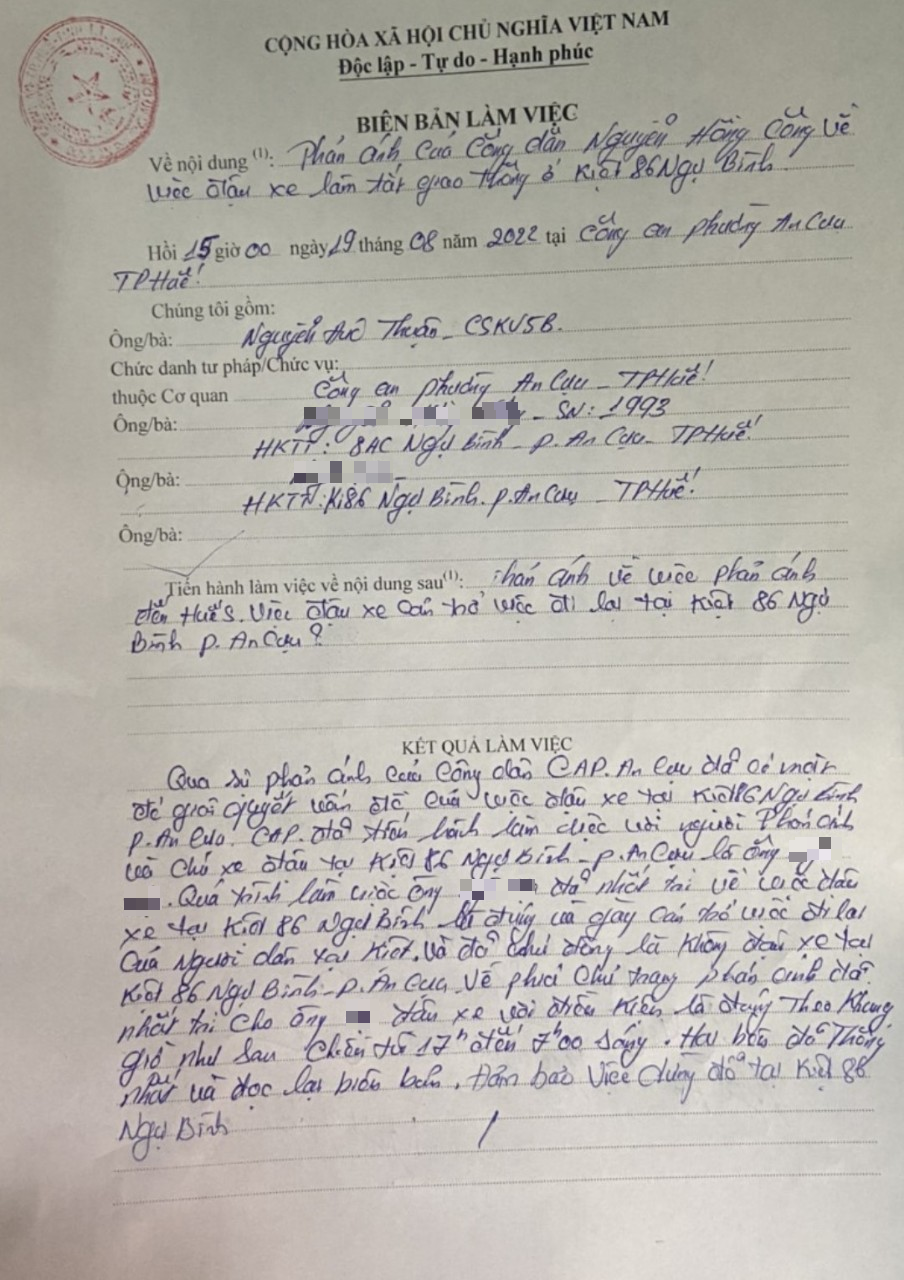 CỘNG HÒA XÃ HỘI CHỦ NGHĨA VIỆT NAM
Độc lập - Tự do - Hạnh phúc
BIÊN BẢN LÀM VIỆC
Về nội dung (1): Phản ánh của Công dân Nguyễn Hồng Công về
việc đậu xe làm tắt giao thông ở Kiệt 86 Ngự Bình.
Hồi 15 giờ 00 ngày 19 tháng 08 năm 2022 tại Công an phường An Cựu
TP Huế!
Chúng tôi gồm:
Ông/bà: Nguyễn Đức Thuận - CSKV5B.
Chức danh tư pháp/Chức vụ:
thuộc Cơ quan Công an phường An Cựu - TP Huế!
Ông/bà: - SN: 1993
HKTT: 8AC Ngự Bình - P. An Cựu - TP Huế!
Ông/bà:
HKTT: K186 Ngự Bình. P. An Cựu - TP Huế!
Ông/bà:
Tiến hành làm việc về nội dung sau(1): Phản ánh về việc phản ánh
đến HueS. Việc đậu xe cản trở việc đi lại tại Kiệt 86 Ngự
Bình P. An Cựu?
KẾT QUẢ LÀM VIỆC
Qua sự phản ánh của Công dân CAP. An Cựu đã có mặt
để giải quyết vấn đề của việc đậu xe tại Kiệt 86 Ngự Bình
P. An Cựu. CAP. đã tiến hành làm việc với người Phản ánh
và Chủ xe đậu tại Kiệt 86 Ngự Bình - P. An Cựu là ông
. Quá trình làm việc ông đã nhất trí về việc đậu
xe tại Kiệt 86 Ngự Bình là đúng và gây cản trở việc đi lại
Của Người dân tại Kiệt. Và đã chủ động là Không đậu xe tại
Kiệt 86 Ngự Bình - P. An Cựu. Về phía phản ánh đã
nhất trí cho ông đậu xe với điều Kiện là Theo Khung
giờ như sau Chiều từ 17h đến 7h00 sáng. Hai bên đã Thống
nhất và đọc lại biên bản. Đảm bảo Việc dừng đỗ tại Kiệt 86
Ngự Bình